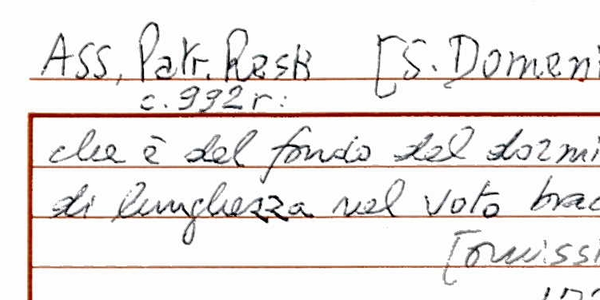 Ass. Patr. Resk [S. Domeni
c. 992 r:
che è del fondo del dormi
di lunghezza nel voto brac
[omissi